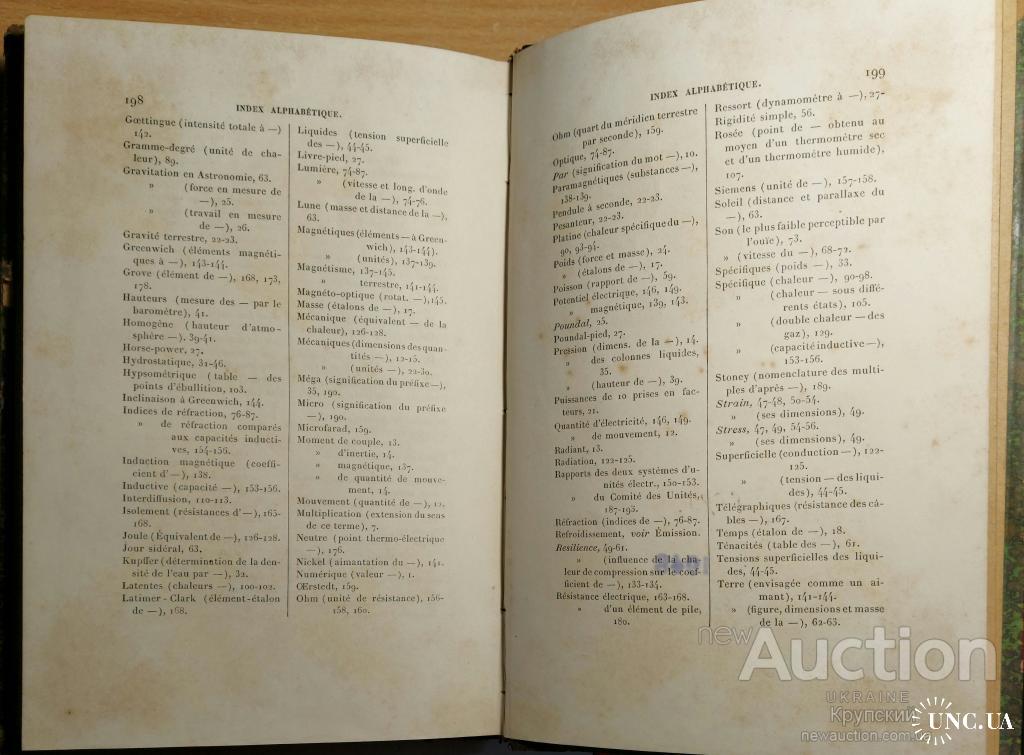 198
INDEX ALPHABÉTIQUE.
Gœttingue (intensité totale à —)
142.
Gramme-degré (unité de cha-
leur), 89.
Gravitation en Astronomie, 63.
» (force en mesure de
—), 25.
» (travail en mesure
de —), 26.
Gravité terrestre, 22-23.
Greenwich (éléments magnéti-
ques à —), 143-144.
Grove (élément de —), 168, 173,
178.
Hauteurs (mesure des — par le
baromètre), 41.
Homogène (hauteur d'atmo-
sphère —), 39-41.
Horse-power, 27.
Hydrostatique, 31-46.
Hypsométrique (table — des
points d'ébullition, 103.
Inclinaison à Greenwich, 144.
Indices de réfraction, 76-87.
» de réfraction comparés
aux capacités inducti-
ves, 154-156.
Induction magnétique (coeffi-
cient d'—), 138.
Inductive (capacité —), 153-156.
Interdiffusion, 110-113.
Isolement (résistances d'—), 165-
168.
Joule (Équivalent de —), 126-128.
Jour sidéral, 63.
Kupffer (détermination de la den-
sité de l'eau par —), 32.
Latentes (chaleurs —), 100-102.
Latimer-Clark (élément-étalon
de —), 168.
Liquides (tension superficielle
des —), 44-45.
Livre-pied, 27.
Lumière, 74-87.
» (vitesse et long. d'onde
de la —), 74-76.
Lune (masse et distance de la —),
63.
Magnétiques (éléments — à Green-
wich), 143-144).
» (unités), 137-139.
Magnétisme, 137-145.
» terrestre, 141-144.
Magnéto-optique (rotat. —), 145.
Masse (étalons de —), 17.
Mécanique (équivalent — de la
chaleur), 126-128.
Mécaniques (dimensions des quan-
tités —), 12-15.
» (unités —), 22-30.
Méga (signification du préfixe —),
35, 190.
Micro (signification du préfixe
—), 190.
Microfarad, 159.
Moment de couple, 13.
» d'inertie, 14.
» magnétique, 137.
» de quantité de mouve-
ment, 14.
Mouvement (quantité de —), 12.
Multiplication (extension du sens
de ce terme), 7.
Neutre (point thermo-électrique
—), 176.
Nickel (aimantation du —), 141.
Numérique (valeur —), 1.
Œrstedt, 159.
Ohm (unité de résistance), 156-
158, 160.
199
INDEX ALPHABÉTIQUE.
Ohm (quart du méridien terrestre
par seconde), 159.
Optique, 74-87.
Par (signification du mot —), 10.
Paramagnétiques (substances —),
138-139.
Pendule à seconde, 22-23.
Pesanteur, 22-23.
Platine (chaleur spécifique du —),
90, 93-94.
Poids (force et masse), 24.
» (étalons de —), 17.
Poisson (rapport de —), 59.
Potentiel électrique, 146, 149.
» magnétique, 139, 143.
Poundal, 25.
Poundal-pied, 27.
Pression (dimens. de la —), 14.
» des colonnes liquides,
35.
» (hauteur de —), 39.
Puissances de 10 prises en fac-
teurs, 21.
Quantité d'électricité, 146, 149.
» de mouvement, 12.
Radiant, 13.
Radiation, 122-125.
Rapports des deux systèmes d'u-
nités électr., 150-153.
» du Comité des Unités,
187-195.
Réfraction (indices de —), 76-87.
Refroidissement, voir Émission.
Resilience, 49-61.
» (influence de la cha-
leur de compression sur le coef-
ficient de —), 133-134.
Résistance électrique, 163-168.
» d'un élément de pile,
180.
Ressort (dynamomètre à —), 27-
Rigidité simple, 56.
Rosée (point de — obtenu au
moyen d'un thermomètre sec
et d'un thermomètre humide),
107.
Siemens (unité de —), 157-158.
Soleil (distance et parallaxe du
—), 63.
Son (le plus faible perceptible par
l'ouïe), 73.
» (vitesse du —), 68-72.
Spécifiques (poids —), 33.
Spécifique (chaleur —), 90-98.
» (chaleur — sous diffé-
rents états), 105.
» (double chaleur — des
gaz), 129.
» (capacité inductive —),
153-156.
Stoney (nomenclature des multi-
ples d'après —), 189.
Strain, 47-48, 50-54.
» (ses dimensions), 49.
Stress, 47, 49, 54-56.
» (ses dimensions), 49.
Superficielle (conduction —), 122-
125.
» (tension — des liqui-
des), 44-45.
Télégraphiques (résistance des câ-
bles —), 167.
Temps (étalon de —), 18.
Ténacités (table des —), 61.
Tensions superficielles des liqui-
des, 44-45.
Terre (envisagée comme un ai-
mant), 141-144.
» (figure, dimensions et masse
de la —), 62-63.
new Auction
UKRAINE
Крупский
newauction.com.ua
UNC.UA